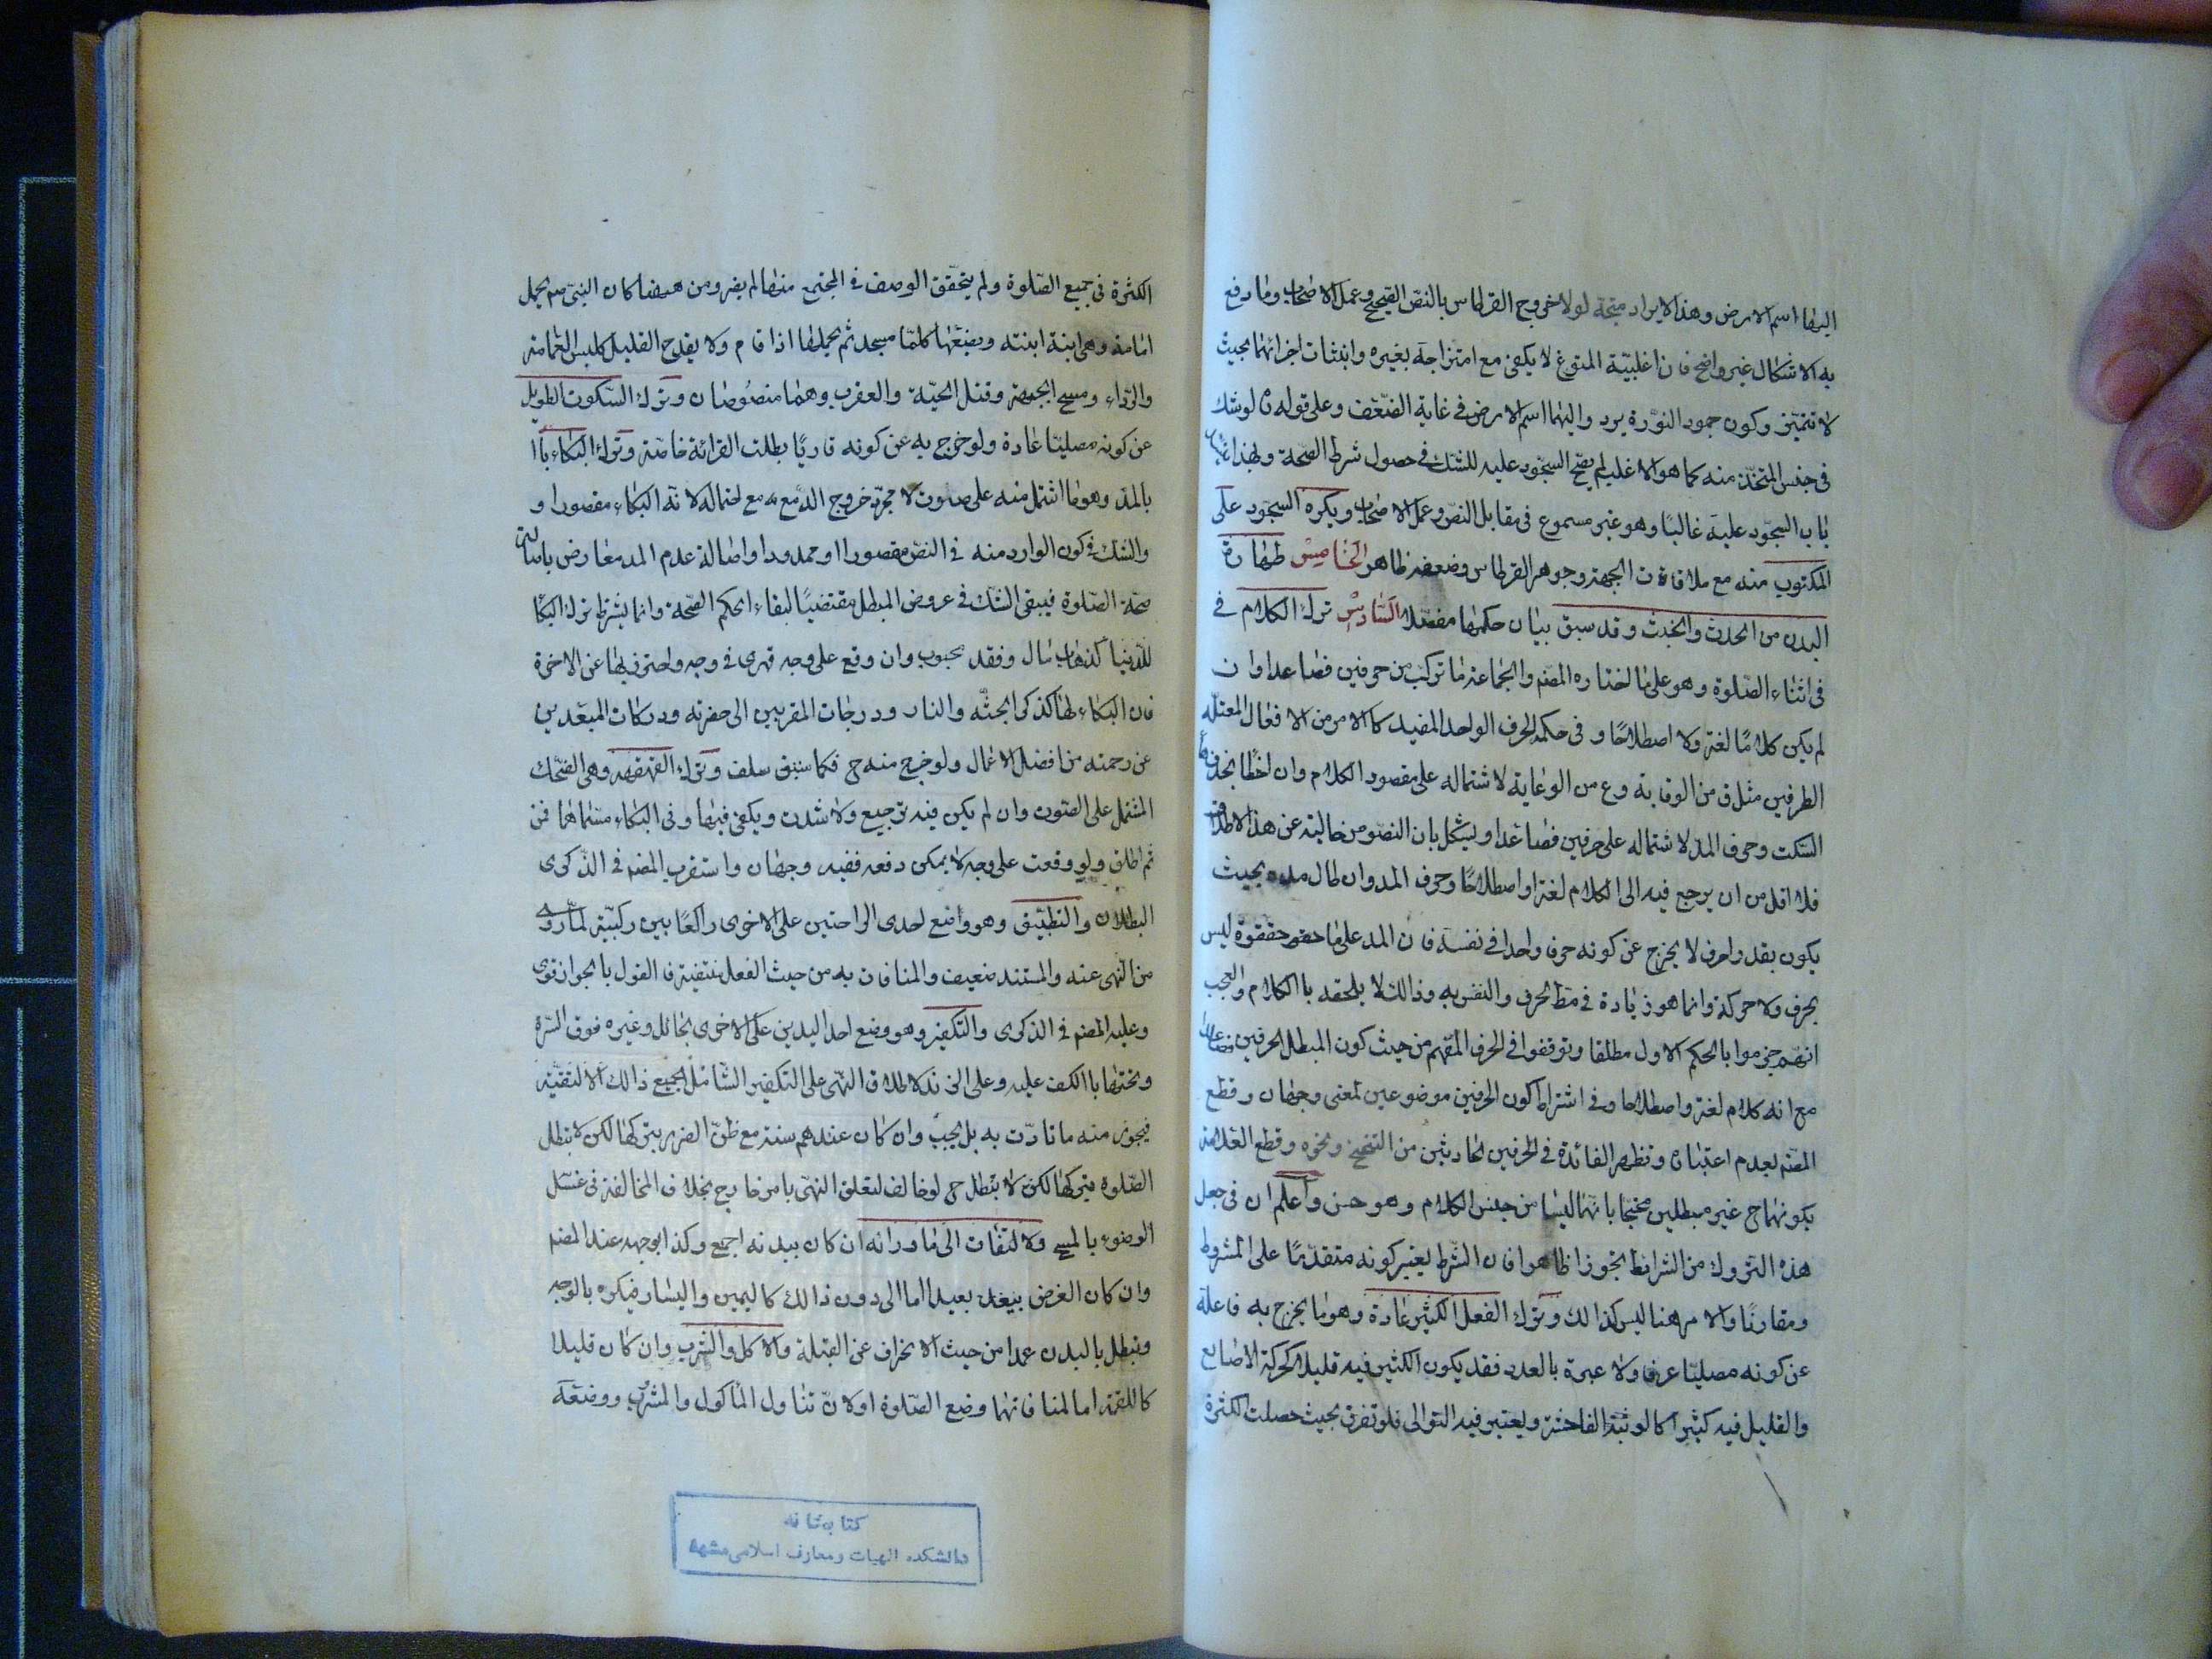 اليها اسم الارض وهذا الايراد متجه لولا خروج القرطاس بالنص الصحيح وعمل الاصحاب وما دفع
به الاشكال غير واضح فان اغلبية المسوغ لا يكفى مع امتزاجه بغيره وانبثاث اجزائهما بحيث
لا تتميز وكون جمود النورة يرد اليهما اسم الارض فى غاية الضعف وعلى قوله لو شك
فى جنس المتخذ منه كما هو الاغلب لم يصح السجود عليه للشك فى حصول شرط الصحة وبهذا
باب السجود عليه غالبا وهو غير مسموع فى مقابل النص وعمل الاصحاب ويكره السجود على
المكتوب منه مع ملاقاة الجبهة وجوهر القرطاس وضعفه ظاهر الخامس طهارة
البدن من الحدث والخبث وقد سبق بيان حكمها مفصلا السادس ترك الكلام فى
فى اثناء الصلوة وهو على ما اختاره المصنم والجماعة ما تركب من حرفين فصاعدا وان
لم يكن كلاما لغة ولا اصطلاحا وفى حكمه الحرف الواحد المفيد كالامر من الافعال المعتلة
الطرفين مثل ق من الوقاية وع من الوعاية لاشتماله على مقصود الكلام وان اخطا بحذف هاء
السكت وحرف المد لاشتماله على حرفين فصاعدا ويشكل بان النصوص خالية عن هذا الاطلاق
فلا اقل من ان يرجع فيه الى الكلام لغة او اصطلاحا وحرف المد وان طال مده بحيث
يكون بقدر احرف لا يخرج عن كونه حرفا واحدا فى نفسه فان المد على ما حققوه ليس
بحرف ولا حركة وانما هو زيادة فى مط الحرف والنفس به وذالك لا يلحقه باالكلام والعجب
انهم جزموا بالحكم الاول مطلقا وتوقفوا فى الحرف المفهم من حيث كون المبطل الحرفين فصاعدا
مع انه كلام لغة واصطلاحا وفى اشتراط كون الحرفين موضوعين لمعنى وجهان وقطع
المصنم بعدم اعتباره وتظهر الفائدة فى الحرفين الحادثين من التنحنح ونحوه وقطع العلامة
بكونهما ح غير مبطلين محتجا بانهما ليسا من جنس الكلام وهو حسن واعلم ان فى جعل
هذه التروك من الشرائط تجوزا ظاهرا فان الشرط يعتبر كونه متقدما على المشروط
ومقارنا والامر هنا ليس كذالك وترك الفعل الكثير عادة وهو ما يخرج به فاعله
عن كونه مصليا عرفا ولا عبرة بالعدد فقد يكون الكثير فيه قليلا كحركة الاصابع
والقليل فيه كثيرا كالوثبة الفاحشة ويعتبر فيه التوالى فلو تفرق بحيث حصلت الكثرة
الكثرة فى جميع الصلوة ولم يتحقق الوصف فى المجتمع منها لم يضر ومن هنا كان النبى صم يحمل
امامة وهى ابنة ابنته ويضعها كلما سجد ثم يحملها اذا قام ولا يقدح القليل كلبس العمامة
والرداء ومسح الجبهة وقتل الحية والعقرب وهما منصوصان وترك السكوت الطويل
عن كونه مصليا عادة ولو خرج به عن كونه قاريا بطلت القرائة خاصة وترك البكاء
بالمد وهو ما اشتمل منه على صوت لا مجرد خروج الدمع مع احتماله لانه البكاء مقصورا و
والشك فى كون الوارد منه فى النص مقصورا او ممدودا واصالة عدم المد معارض باصالة
صحة الصلوة فيبقى الشك فى عروض المبطل مقتضيا لبقاء الحكم الصحة وانما يشترط ترك البكا
للدنيا كذهاب مال وفقد محبوب وان وقع على وجه قهرى فى وجه واحترز بها عن الاخرة
فان البكاء لها كذكر الجنة والنار ودرجات المقربين الى حضرته ودركات المبعدين
عن رحمته من افضل الاعمال ولو خرج منه ح فكما سبق سلف وترك القهقهه وهى الضحك
المشتمل على الصوت وان لم يكن فيه ترجيع ولا شدت ويكفى فيها وفى البكاء مسماهما فمن
ثم اطلق ولو وقعت على وجه لا يمكن دفعه ففيه وجهان واستقرب المصنم فى الذكرى
البطلان والتطبيق وهو واضع احدى الراحتين على الاخرى راكعا بين ركبتيه لما روى
من النهى عنه والمستند ضعيف والمنافات به من حيث الفعل منتفية فالقول بالجواز قوى
وعليه المصنم فى الذكرى والتكفير وهو وضع احد اليدين على الاخرى بحائل وغيره فوق السرة
وتحتها باالكف عليه وعلى الزند لاطلاق النهى على التكفير الشامل لجميع ذالك الا لتقية
فيجوز منه ما تادت به بل يجب وان كان عندهم سنة مع ظن الضرر بتركها لكن لا تبطل
الصلوة بتركها لكن لا تبطل ح لو خالف لتعلق النهى بامر خارج بخلاف المخالفة فى غسل
الوضوء بالمسح والالتفات الى ما ورائه ان كان ببدنه اجمع وكذا بوجهه عند المصنم
وان كان الغرض ببعده بعيدا اما الى دون ذالك كاليمين واليسار فيكره بالوجه
وتبطل بالبدن عمدا من حيث الانحراف عن القبلة والاكل والشرب وان كان قليلا
كاللقمة اما لمنافاتها وضع الصلوة او لان تناول الماكول والمشرب ووضعه
كتابخانه
دانشكده الهيات ومعارف اسلامى مشهد